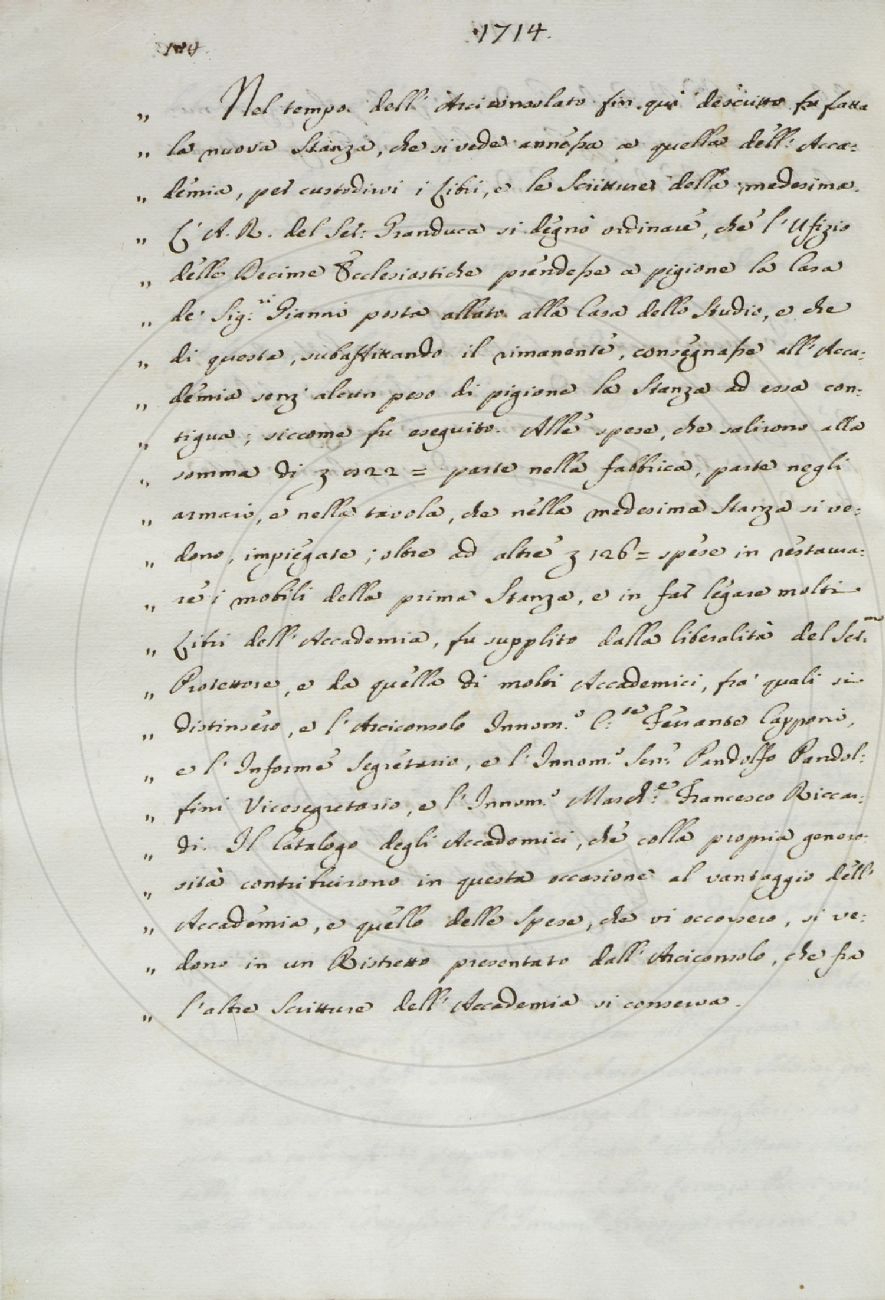 1714.
180.
„ Nel tempo dell' Arciconsolato fin qui descritto fu fatta
„ la nuova Stanza, che si vede annessa a quella dell' Acca-
„ demia, per custodirvi i Libri, e le Scritture della medesima.
„ L' A. R. del Ser: Granduca si degnò ordinare, che l' Ufizio
„ delle Decime Ecclesiastiche prendesse a pigione la Casa
„ de' Sig:ri Gianni posta allato alla Casa dello Studio, e che
„ di questa, subaffittando il rimanente, consegnasse all' Acca-
„ demia senz' alcun peso di pigione la Stanza ad essa con-
„ tigua; siccome fu eseguito. Alle spese, che salirono alla
„ somma di = parte nella fabbrica, parte negli
„ armari, e nella tavola, che nella medesima Stanza si ve-
„ dono, impiegate; oltre ad altre 126 = spese in restaura-
„ re i mobili della prima Stanza, e in far legare molti
„ Libri dell' Accademia, fu supplito dalla liberalità del Ser:mo
„ Protettore, e da quella di molti Accademici, fra' quali si
„ distinsero, e l' Arciconsolo Innom.o C:te Ferrante Capponi,
„ e l' Informe Segretario, e l' Innom.o Sen: Pandolfo Pandol-
„ fini Vicesegretario, e l' Innom.o March:e Francesco Riccar-
„ di. Il Catalogo degli Accademici, che colla propria genero-
„ sità contribuirono in questa occasione al vantaggio dell'
„ Accademia, e quello delle Spese, che vi occorsero, si ve-
„ dono in un Ristretto presentato dall' Arciconsolo, che fra
„ l' altre Scritture dell' Accademia si conserva.